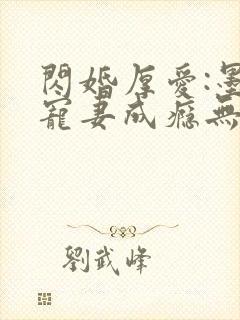 閃婚厚愛:墨
寵妻成癮無
劉武峰